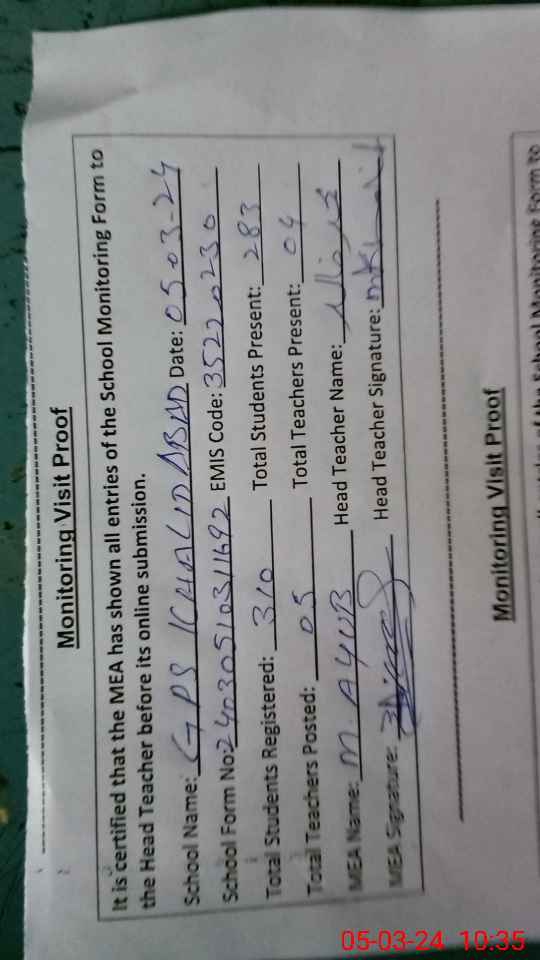 Monitoring Visit Proof
It is certified that the MEA has shown all entries of the School Monitoring Form to
the Head Teacher before its online submission.
School Name: GPS KHALIDABAD Date: 05-03-24
School Form No: EMIS Code: 35220230
Total Students Registered: 310 Total Students Present: 283
Total Teachers Posted: 05 Total Teachers Present: 04
MEA Name: M. AYUB Head Teacher Name:
MEA Signature: Head Teacher Signature:
Monitoring Visit Proof
of the School Monitoring Form to
05-03-24 10:35